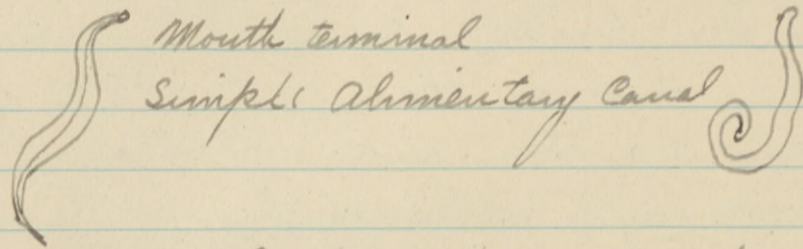 Mouth terminal
Simple Alimentary Canal